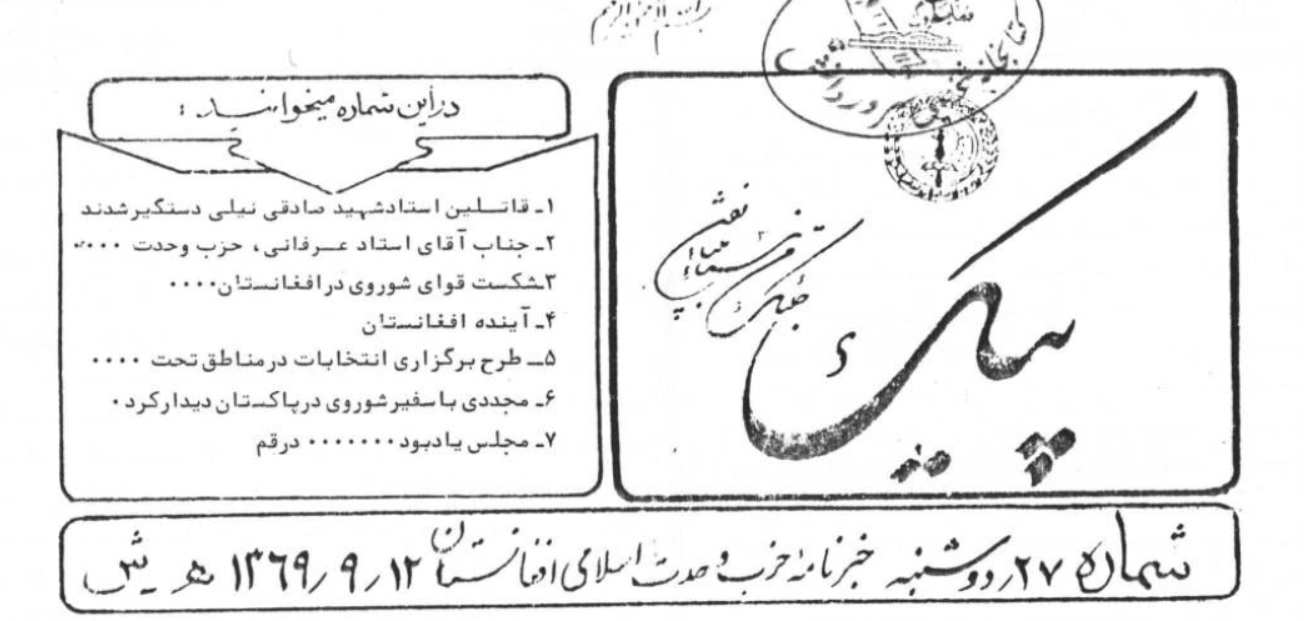 بسم الله الرحمن الرحیم
پیک
در این شماره میخوانید :
۱ـ قاتلین استاد شهید صادقی نیلی دستگیر شدند
۲ـ جناب آقای استاد عرفانی، حزب وحدت ۰۰۰۰
۳ـ شکست قوای شوروی در افغانستان ۰۰۰۰
۴ـ آینده افغانستان
۵ـ طرح برگزاری انتخابات در مناطق تحت ۰۰۰۰
۶ـ مجددی با سفیر شوروی در پاکستان دیدار کرد۰
۷ـ مجلس یادبود ۰۰۰۰۰۰۰ در قم
شماره ۲۷ر دوشنبه خبرنامهٔ حزب وحدت اسلامی افغانستان ۱۲ر۹ر۱۳۶۹ هـ ـ ش